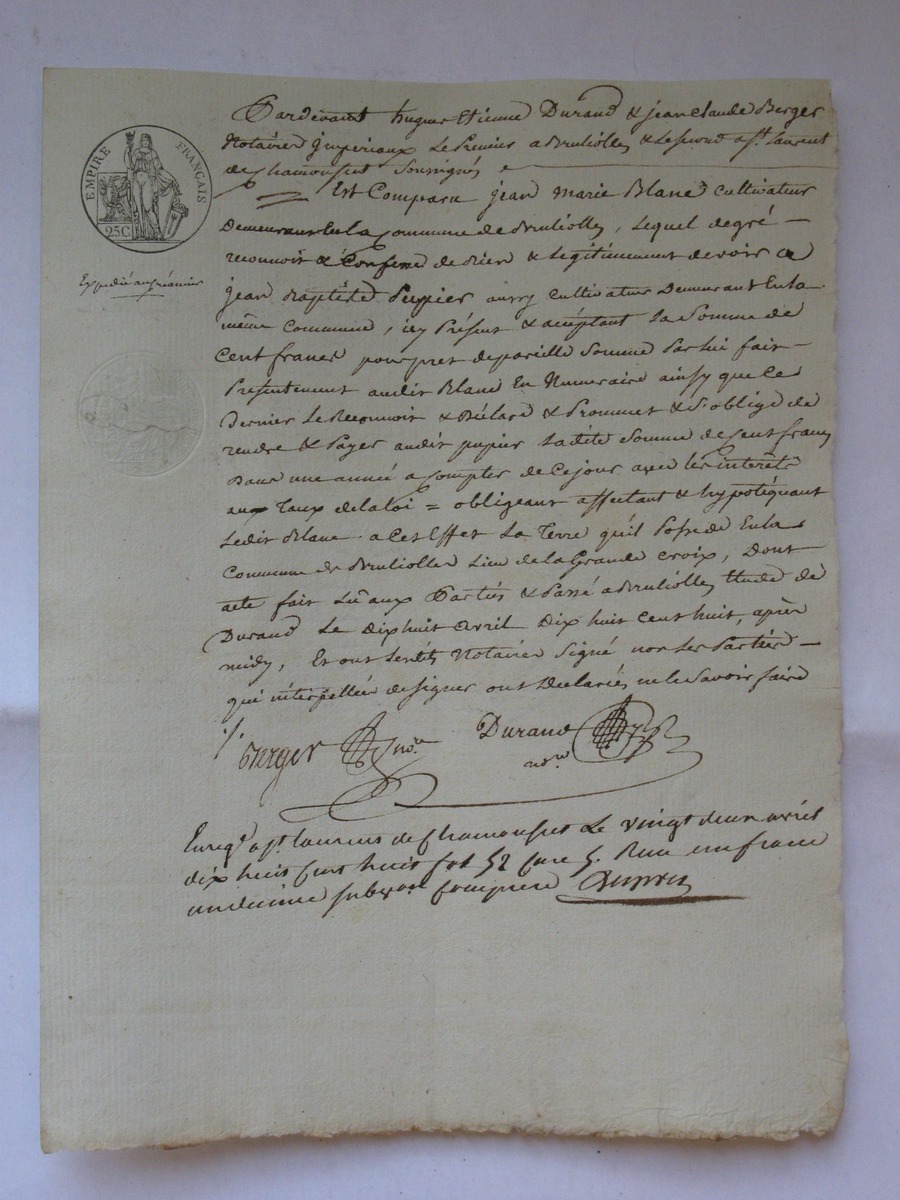 EMPIRE FRANÇAIS
25C
Expedié au créancier
Pardevant hugues Etienne Durand & jean claude Berger
Notaires jmperiaux Le Premier a Brulliolles & Le second a St. Laurent
de chamousset Soussignés
Est Comparu jean marie Blanc cultivateur
Demeurant En La Commune de Brulliolles, Lequel de gré
reconnoit & Confesse de bien & Legitimement devoir a
jean Baptiste Pupier aussy cultivateur Demeurant En La
même commune, icy Présent & acceptant La Somme de
Cent francs pour pret de pareille Somme Par lui fait
Présentement audit Blanc En Numeraire ainsy que Ce
Dernier Le Reconnoit & Déclare & Prommet & S'oblige de
rendre & Payer audit pupier La dite Somme de Cent francs
Dans une année a Compter de Ce jour avec Les interêts
aux Taux de la Loi = obligeant affectant & hypotéquant
Ledit Blanc a Cet Effet La Terre qu'il Possede En La
Commune de Brulliolles Lieu de La Grande croix, Dont
acte fait Lu aux Parties & Passé a Brulliolles Etude de
Durand Le Dix huit avril Dix huit Cent huit, après
midy, Et ont Lesdits Notaires Signé non Les Parties
qui interpellées de signer ont Declarées ne le Savoir faire
Berger nore Durand
nore
Enregé a St laurent de Chamousset Le vingt deux avril
dix huit cent huit fol 52 case 5. Reçu un franc
un decime subvon comprise